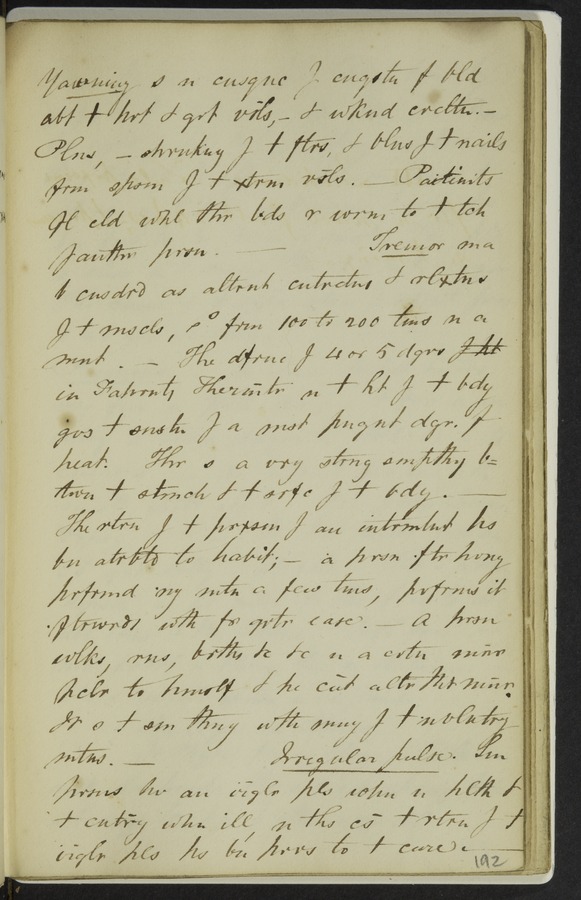 Yawning s n cnsqnc f cngstn f bld
abt + hrt & grt vsls, - & wknd crcltn. -
Plns, - shrnkng f + ftrs, & blns f + nails
frm spsm f + xtrm vsls. — Patients
fl cld whl thr bds r wrm to + tch
f anthr prsn. — Tremor ma
b cnsdrd as altrnt cntrctns & rlxtns
f + mscls, frm 100 to 200 tms n a
mnt. — The dfrnc f 4 or 5 dgrs f ht
in Fahrnts Thermtr n + ht f + bdy
gvs + snstn f a mst pngnt dgr. f
heat. Thr s a vry strng smpthy b=
twn + stmch & + srfc f + bdy. —
The rtrn f + prxsm f an intrmtnt hs
bn atrbtd to habit; - a prsn ftr hvng
prfrmd ny mtn a few tms, prfrms it
ftrwrds wth fr grtr ease. - A prsn
wlks, rns, bths &c &c n a crtn mnr
pclr to hmslf & he cnt altr tht mnr.
It s + sm thng wth mny f + nvlntry
mtns. — Irregular pulse. Sm
prsns hv an irglr pls whn n hlth &
+ cntry whn ill, n ths cs + rtrn f +
irglr pls hs bn prvs to + cure. —
192